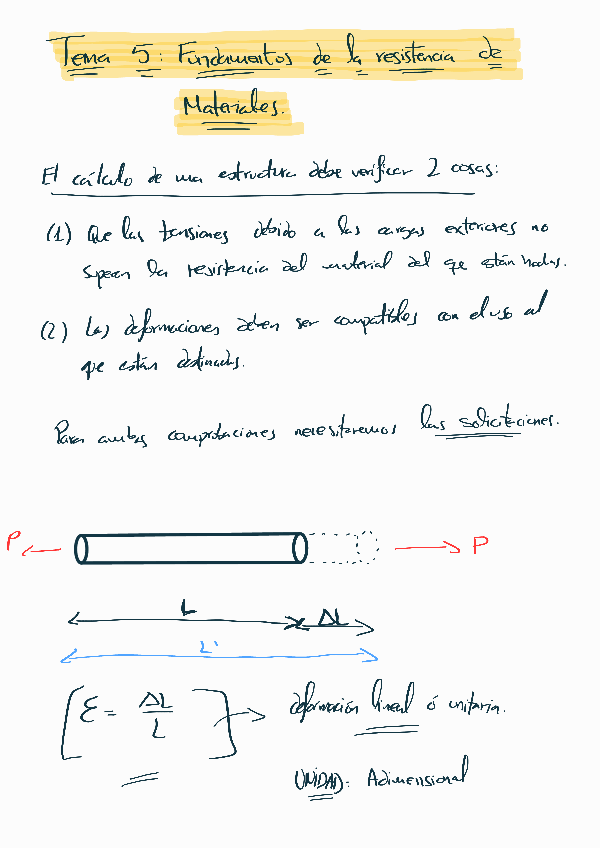 Tema 5: Fundamentos de la resistencia de
Materiales.
El cálculo de una estructura debe verificar 2 cosas:
(1) Que las tensiones debido a las cargas exteriores no
superen la resistencia del material del que están hechas.
(2) Las deformaciones deben ser compatibles con el uso al
que están destinadas.
Para ambas comprobaciones necesitaremos las solicitaciones.
P P
L ΔL
L'
[ε = ΔL/L] → deformación lineal ó unitaria.
UNIDAD: Adimensional